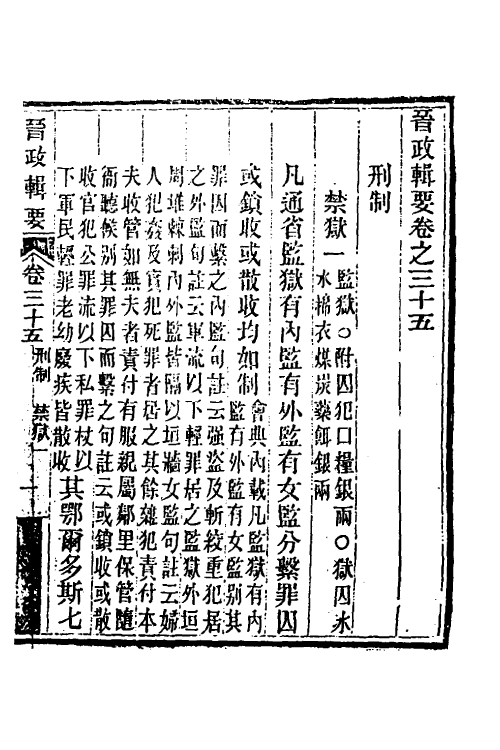 晉政輯要卷之三十五
刑制
禁獄一
監獄○附囚犯口糧銀兩○獄囚氷
水棉衣煤炭藥餌銀兩
凡通省監獄有內監有外監有女監分繫罪囚
或鎖收或散收均如制
會典內載凡監獄有內
監有外監有女監别其
罪囚而繫之內監句註云强盜及斬絞重犯居
之外監句註云軍流以下輕罪居之監獄外垣
周堆棘刺內外監皆隔以垣牆女監句註云婦
人犯姦及實犯死罪者居之其餘雜犯責付本
夫收管如無夫者責付有服親屬鄰里保管隨
衙聽候别其罪囚而繫之句註云或鎖收或散
收官犯公罪流以下私罪杖以
下軍民輕罪老幼廢疾皆散收
其鄂爾多斯七
晉政輯要 卷三十五 刑制 禁獄一 一